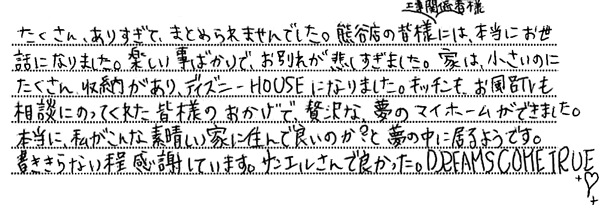 工事関係者様
たくさん、ありすぎて、まとめられませんでした。熊谷店の皆様には、本当にお世
話になりました。楽しい事ばかりで、お別れが悲しすぎました。家は、小さいのに
たくさん収納があり、ディズニーHOUSEになりました。キッチンも、お風呂TVも
相談にのってくれた皆様のおかげで、贅沢な、夢のマイホームができました。
本当に、私がこんな素晴しい家に住んで良いのか?と夢の中に居るようです。
書ききらない程感謝しています。サンエルさんで良かった。DREAMS COME TRUE